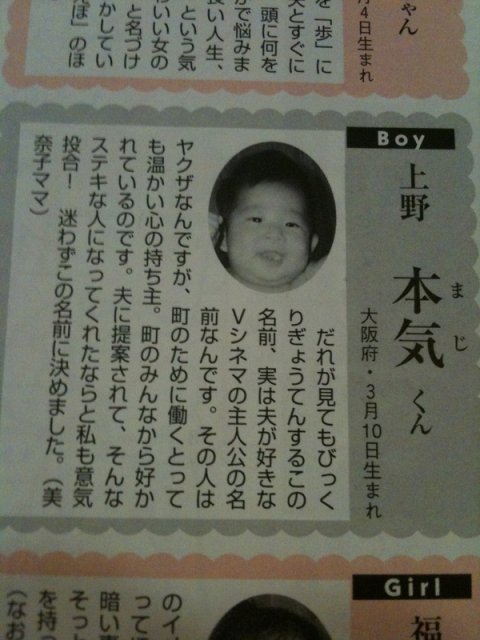 ゃん
月4日生まれ
を「歩」に
夫とすぐに
頭に何を
で悩みま
長い人生、
という気
わいい女の
と名づけ
かしてい
ぽ』のほ
Boy
上野 本気 くん
まじ
大阪府・3月10日生まれ
だれが見てもびっく
りぎょうてんするこの
名前、実は夫が好きな
Vシネマの主人公の名
前なんです。その人は
ヤクザなんですが、町のために働くとって
も温かい心の持ち主。町のみんなから好か
れているのです。夫に提案されて、そんな
ステキな人になってくれたならと私も意気
投合！ 迷わずこの名前に決めました。（美
奈子ママ）
Girl
福
のイ
って
暗い
そっと
を持
（なお